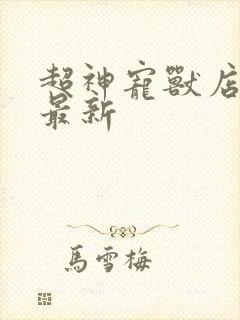 超神寵獸店
最新
馬雪梅